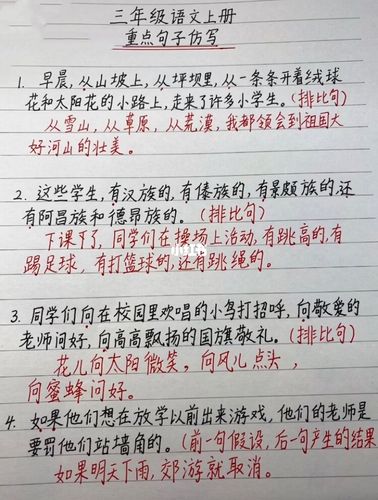 三年级语文上册
重点句子仿写
1. 早晨,从山坡上,从坪坝里,从一条条开着绒球
花和太阳花的小路上,走来了许多小学生。(排比句)
从雪山,从草原,从荒漠,我都领会到祖国大
好河山的壮美。
2. 这些学生,有汉族的,有傣族的,有景颇族的,还
有阿昌族和德昂族的。(排比句)
下课下了,同学们在操场上活动,有跳高的,有
踢足球,有打篮球的,还有跳绳的。
3. 同学们向在校园里欢唱的小鸟打招呼,向敬爱的
老师问好,向高高飘扬的国旗敬礼。(排比句)
花儿向太阳微笑,向风儿点头,
向蜜蜂问好。
4. 如果他们想在放学以前出来游戏,他们的老师是
要罚他们站墙角的。(前一句假设,后一句产生的结果
如果明天下雨,郊游就取消。